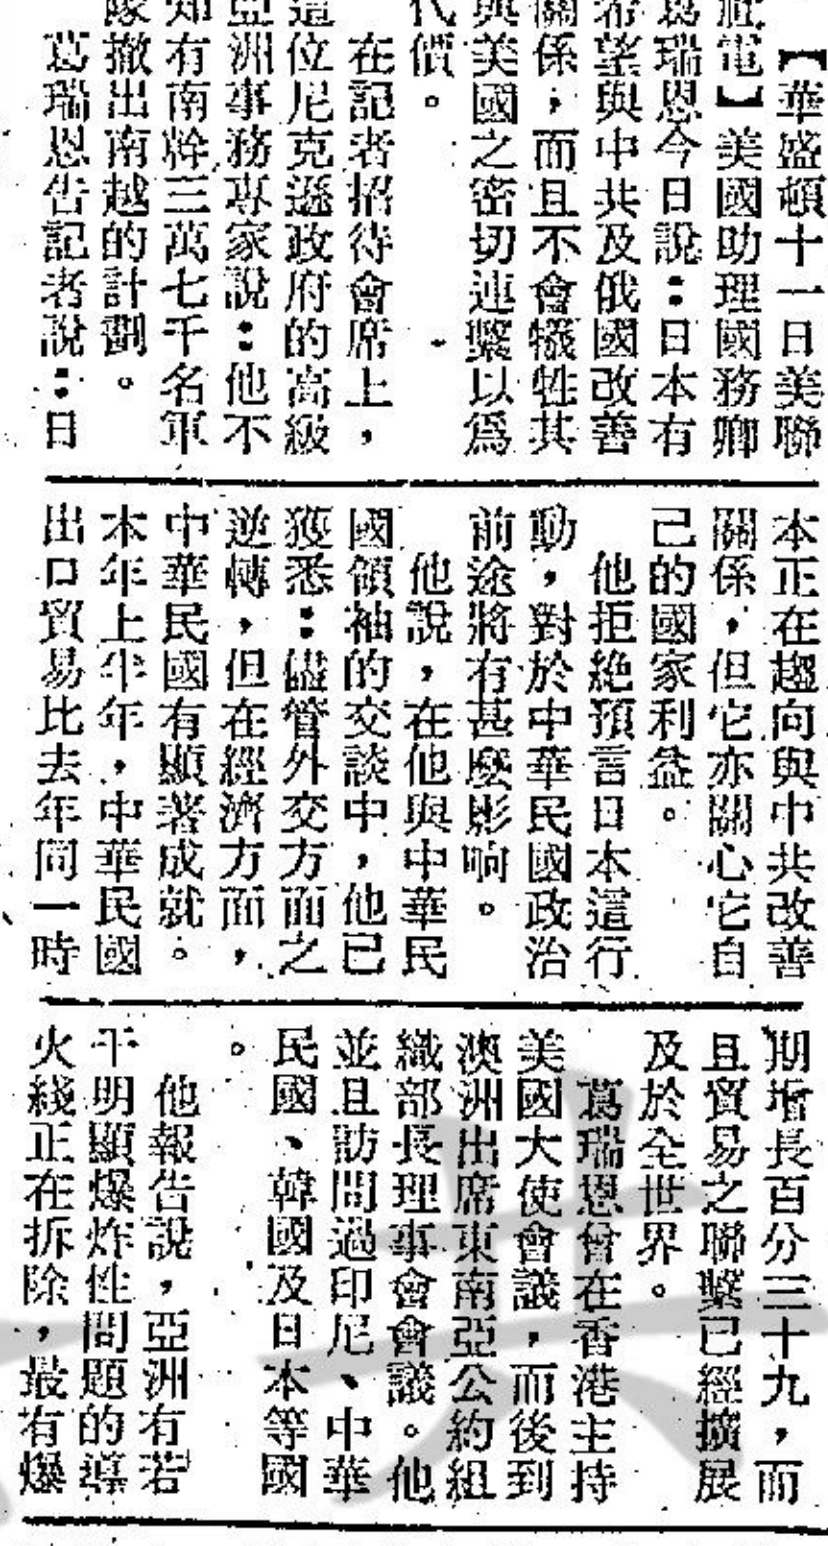 【華盛頓十一日美聯
社電】美國助理國務卿
葛瑞恩今日說：日本有
希望與中共及俄國改善
關係，而且不會犧牲其
與美國之密切連繫以爲
代價。
在記者招待會席上，
這位尼克遜政府的高級
亞洲事務專家說：他不
知有南韓三萬七千名軍
隊撤出南越的計劃。
葛瑞恩告記者說：日
本正在趨向與中共改善
關係，但它亦關心它自
己的國家利益。
他拒絶預言日本這行
動，對於中華民國政治
前途將有甚麽影响。
他說，在他與中華民
國領袖的交談中，他已
獲悉：儘管外交方面之
逆轉，但在經濟方面，
中華民國有顯著成就。
本年上半年，中華民國
出口貿易比去年同一時
期增長百分三十九，而
且貿易之聯繫已經擴展
及於全世界。
葛瑞恩曾在香港主持
美國大使會議，而後到
澳洲出席東南亞公約組
織部長理事會會議。他
並且訪問過印尼、中華
民國、韓國及日本等國
。
他報告說，亞洲有若
干明顯爆炸性問題的導
火綫正在拆除，最有爆
共